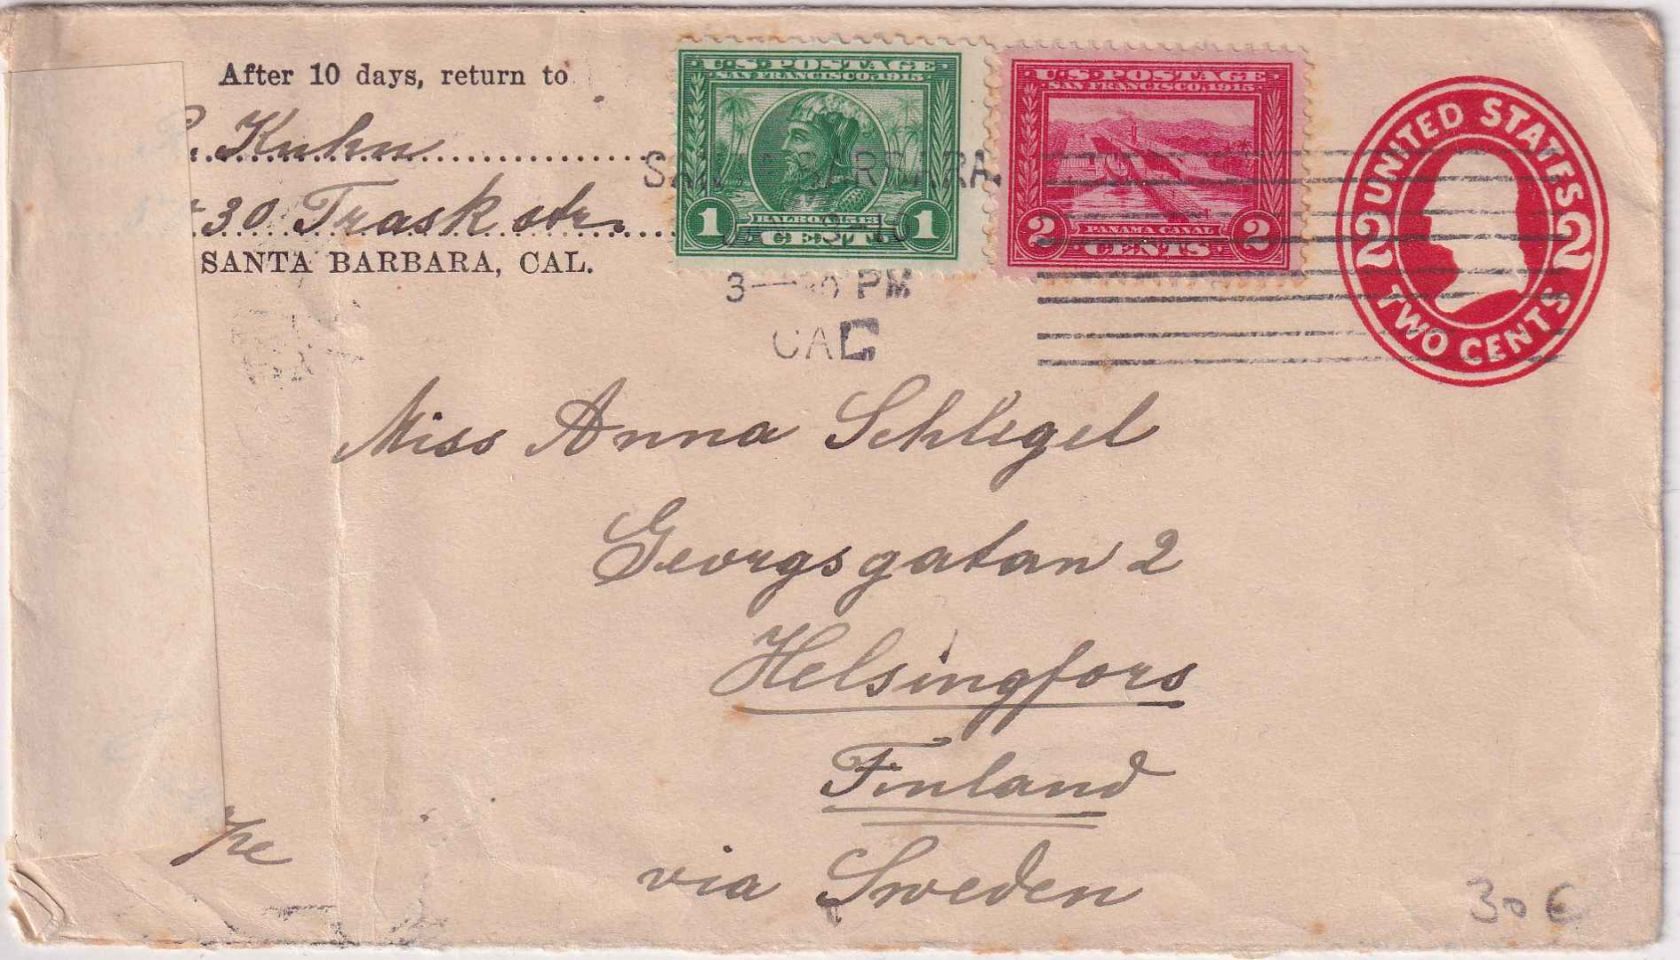 After 10 days, return to
Kuhn
30 Trask str.
SANTA BARBARA, CAL.
U.S. POSTAGE
SAN FRANCISCO, 1915
1 BALBOA 1513 1
CENT
U.S. POSTAGE
SAN FRANCISCO, 1915
2 PANAMA CANAL 2
CENTS
UNITED STATES
2 2
TWO CENTS
SANTA BARBARA
3 — 30 PM
CAL
Miss Anna Schlegel
Georgsgatan 2
Helsingfors
Finland
via Sweden
30 €